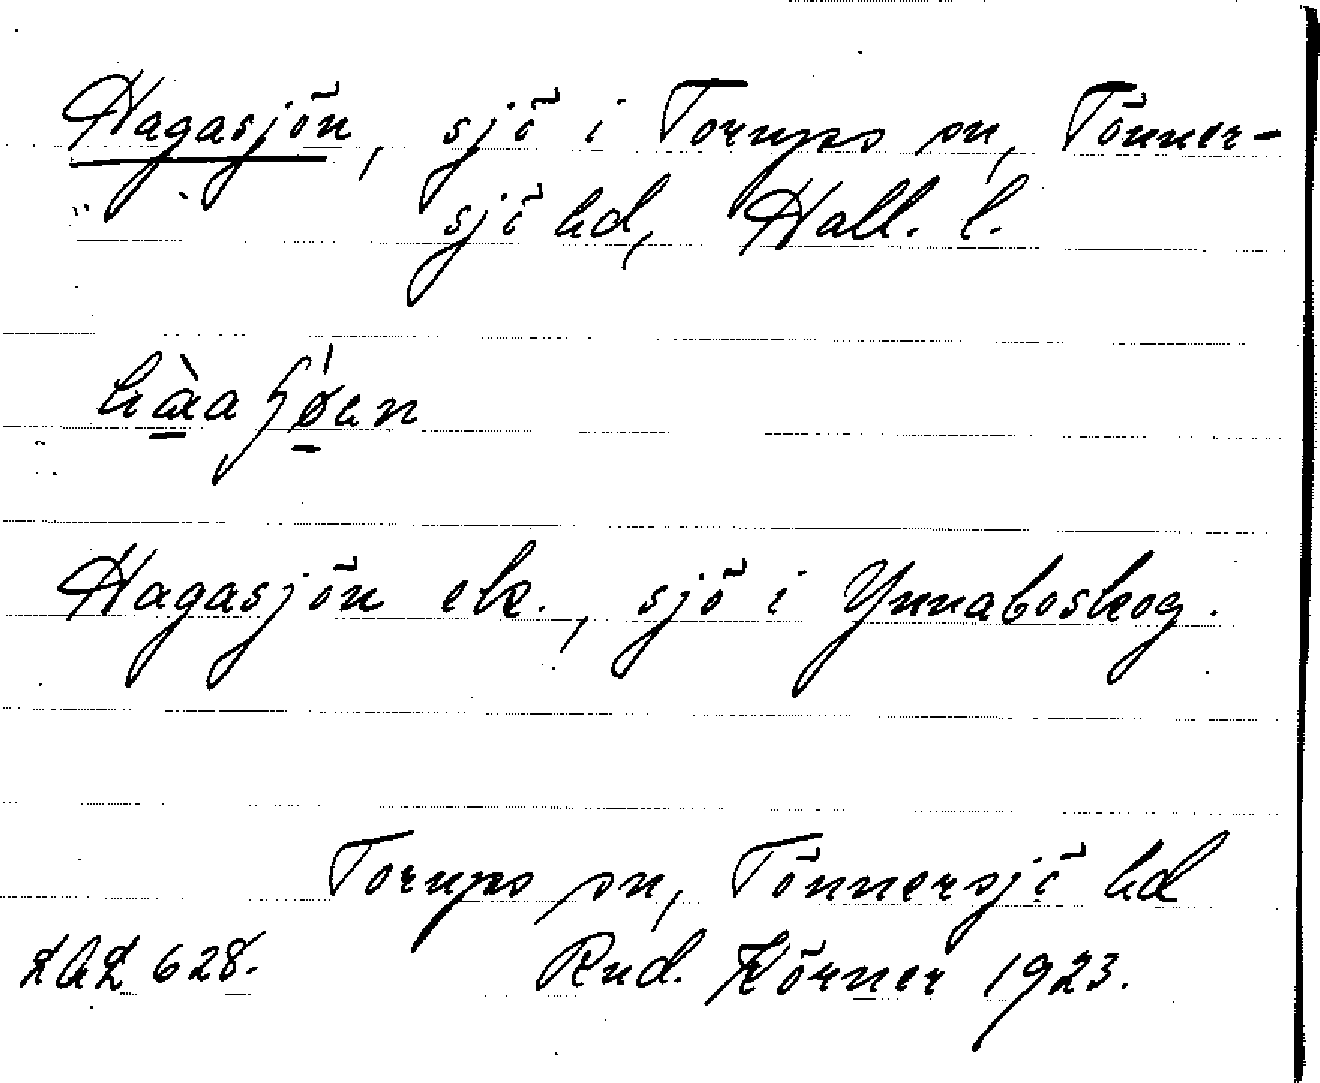 Hagasjön, sjö i Torups sn, Tönner-
sjö hd, Hall. l.
Hagasjön ek., sjö i Ynnaboskog.
Torups sn, Tönnersjö hd
628. Rud. Körner 1923.